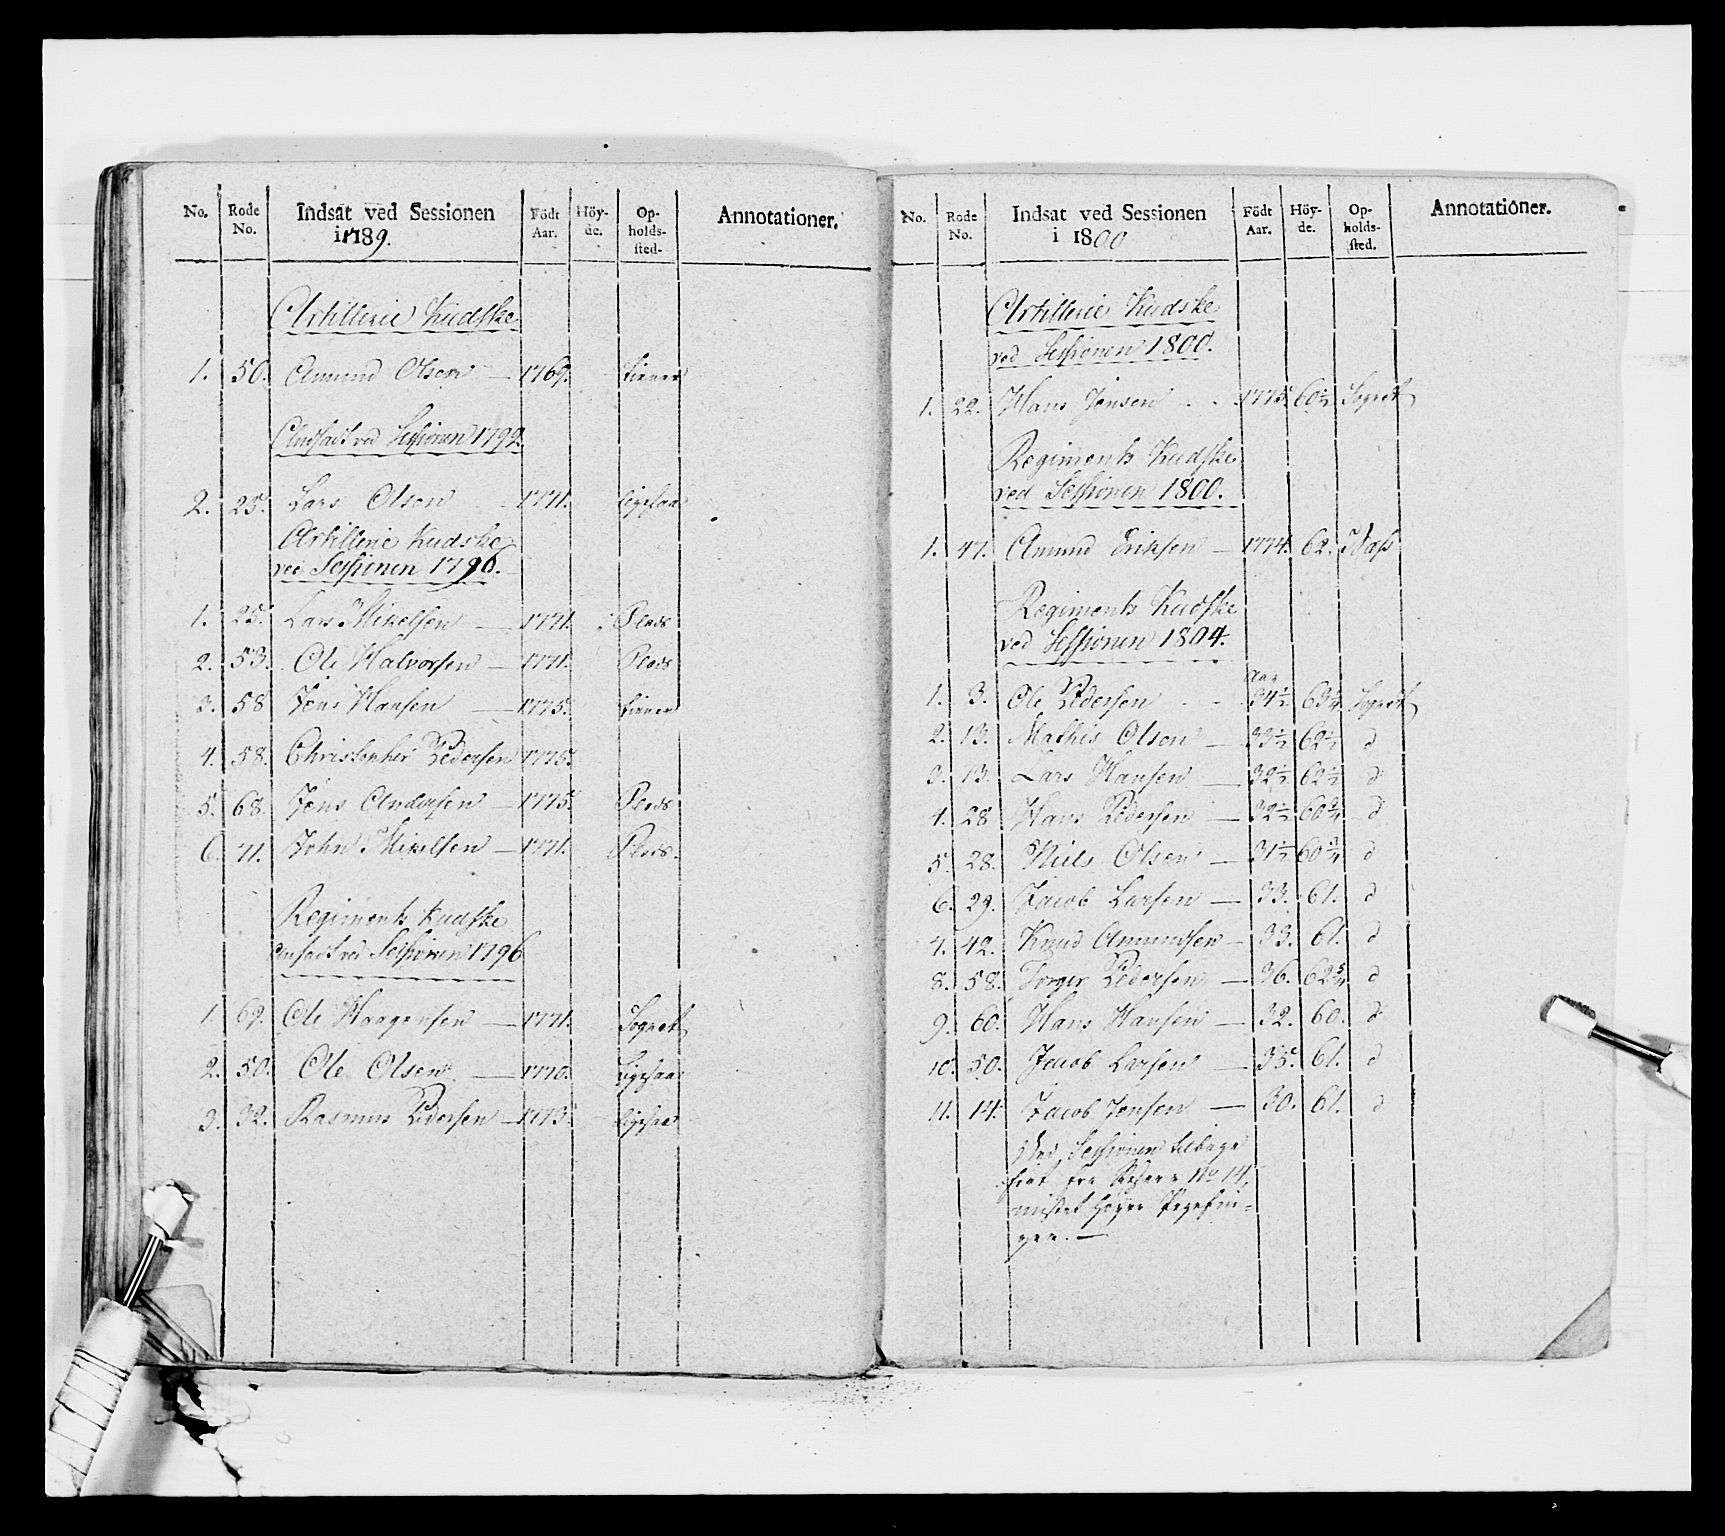 No. Rode No. Indsat ved Sessionen i 1789. Födt Aar. Höy-de. Op-holds-sted. Annotationer.
Artillerie Kudske
1. 50. Amund Olsen — 1769. tiener
Andsadt ved Sessionen 1792.
2. 25. Lars Olsen 1771. ligesaa
Artillerie Kudske
ved Sessionen 1796.
1. 25. Lars Mikelsen — 1771. Plads
2. 53. Ole Halvorsen — 1771. Plads
3. 58 Jens Hansen — 1775. tiener
4. 58. Christopher Pedersen 1775.
5. 68. Jens Andersen — 1775. Plads
6. 71. John Mikelsen — 1771. Plads.
Regiments Kudske
ansadt ved Sessionen 1796
1. 69. Ole Haagensen — 1771. Sognet
2. 50. Ole Olsen — 1770. Ligesaa
3. 32. Rasmus Pedersen — 1773. ligesaa
No. Rode No. Indsat ved Sessionen i 1800 Födt Aar. Höy-de. Op-holds-sted. Annotationer.
Artillerie Kudske
ved Sessionen 1800.
1. 22. Hans Jensen 1775. 60½ Sognet
Regiments Kudske
ved Sessionen 1800.
1. 47. Amund Eriksen — 1774. 62.
Regiments Kudske
ved Sessionen 1804.
Aar
1. 3. Ole Pedersen 34½ 63¼ Sognet
2. 13. Mathis Olsen — 33½ 62½ d
3. 13. Lars Hansen — 32½ 62½ d
4. 28 Hans Pedersen — 32½ 60¾ d
5. 28. Niels Olsen — 31½ 60¾ d
6. 29. Jacob Larsen — 33. 61. d
7. 42. Knud Amundsen — 33. 61. d
8. 58. Torger Pedersen — 36. 62¾ d
9. 60. Hans Hansen — 32. 60. d
10. 50. Jacob Larsen — 35. 61. d
11. 14. Jacob Jensen — 30. 61. d
Ved Sessionen tilbage
sat fra No 14,
mistet høyre Pegefin-
ger. —